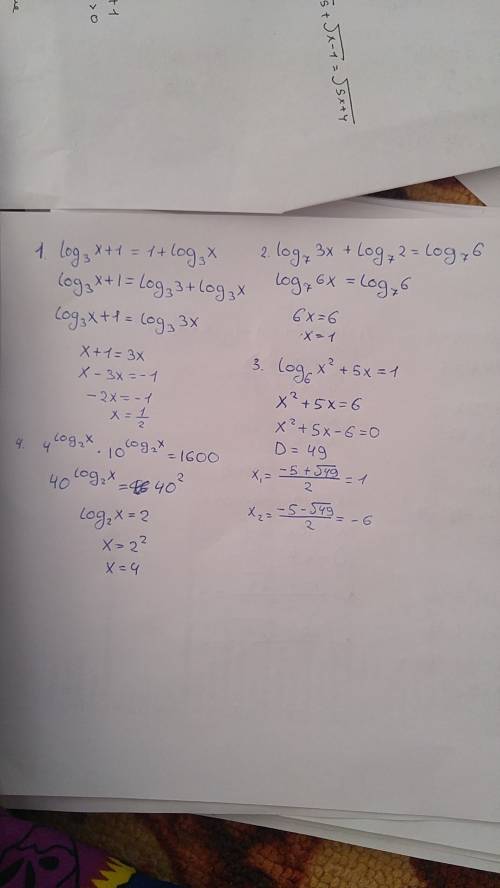 5 + √x-1 = √5x+4
+ 1
> 0
1. log₃ x+1 = 1+log₃x
log₃x+1 = log₃3+log₃x
log₃x+1 = log₃ 3x
x+1 = 3x
x - 3x = -1
-2x = -1
x = 1/2
2. log₇ 3x + log₇ 2 = log₇ 6
log₇ 6x = log₇ 6
6x = 6
x = 1
3. log₆ x² + 5x = 1
x² + 5x = 6
x² + 5x - 6 = 0
D = 49
x₁ = (-5 + √49)/2 = 1
x₂ = (-5 - √49)/2 = -6
4. 4^(log₂x) · 10^(log₂x) = 1600
40^(log₂x) = 40²
log₂x = 2
x = 2²
x = 4